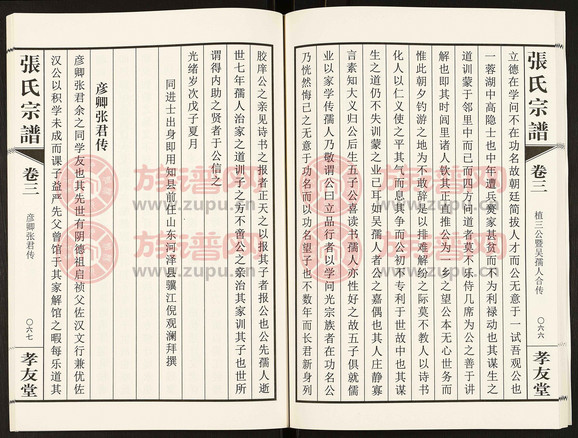 張氏宗譜
卷三
植三公暨吴孺人合传
〇六六
孝友堂
立德在学问不在功名故朝廷简拔人才而公无意于一试吾观公也
一蓉湖中高隐士也中年遭兵燹家甚贫而不为利禄动也其谋生之
道训蒙于邻里中而已而四方问道者莫不乐侍几席为公之善于讲
解也即其时闾里诸人钦其正直推公为一乡之望公本无心世务而
惟此朝夕钓游之地为不敢辞是以排难解纷之际莫不教人以诗书
化人以仁义使之平其气而息其争而公初不专利于世故中也其谋
生之道仍不失训蒙之业已耳如吴孺人者公之嘉偶也其人庄静寡
言素知大义归公后生五子公喜读书孺人亦性好之故五子俱就儒
业以家学传孺人乃敬谓公曰立品行者以学问光宗族者在功名公
乃恍然悔己之无意于功名而以功名望子也不数年而长君新身列
胶庠公之亲见诗书之报者正天之以报其子者报公也公先孺人逝
世七年孺人治家之道训子之方不啻公之亲治其家训其子也世所
谓得内助之贤者于公信之
光绪岁次戊子夏月
同进士出身即用知县前任山东河泽县骥江倪观澜拜撰
彦卿张君传
彦卿张君余之同学友也其先世有阴德祖启祯父佐汉文行兼优佐
汉公以积学未成而课子益严先父曾馆于其家解馆之暇每乐道其
張氏宗譜
卷三
彦卿张君传
〇六七
孝友堂
族谱网
www.zupu.cn
族谱网
www.zupu.cn